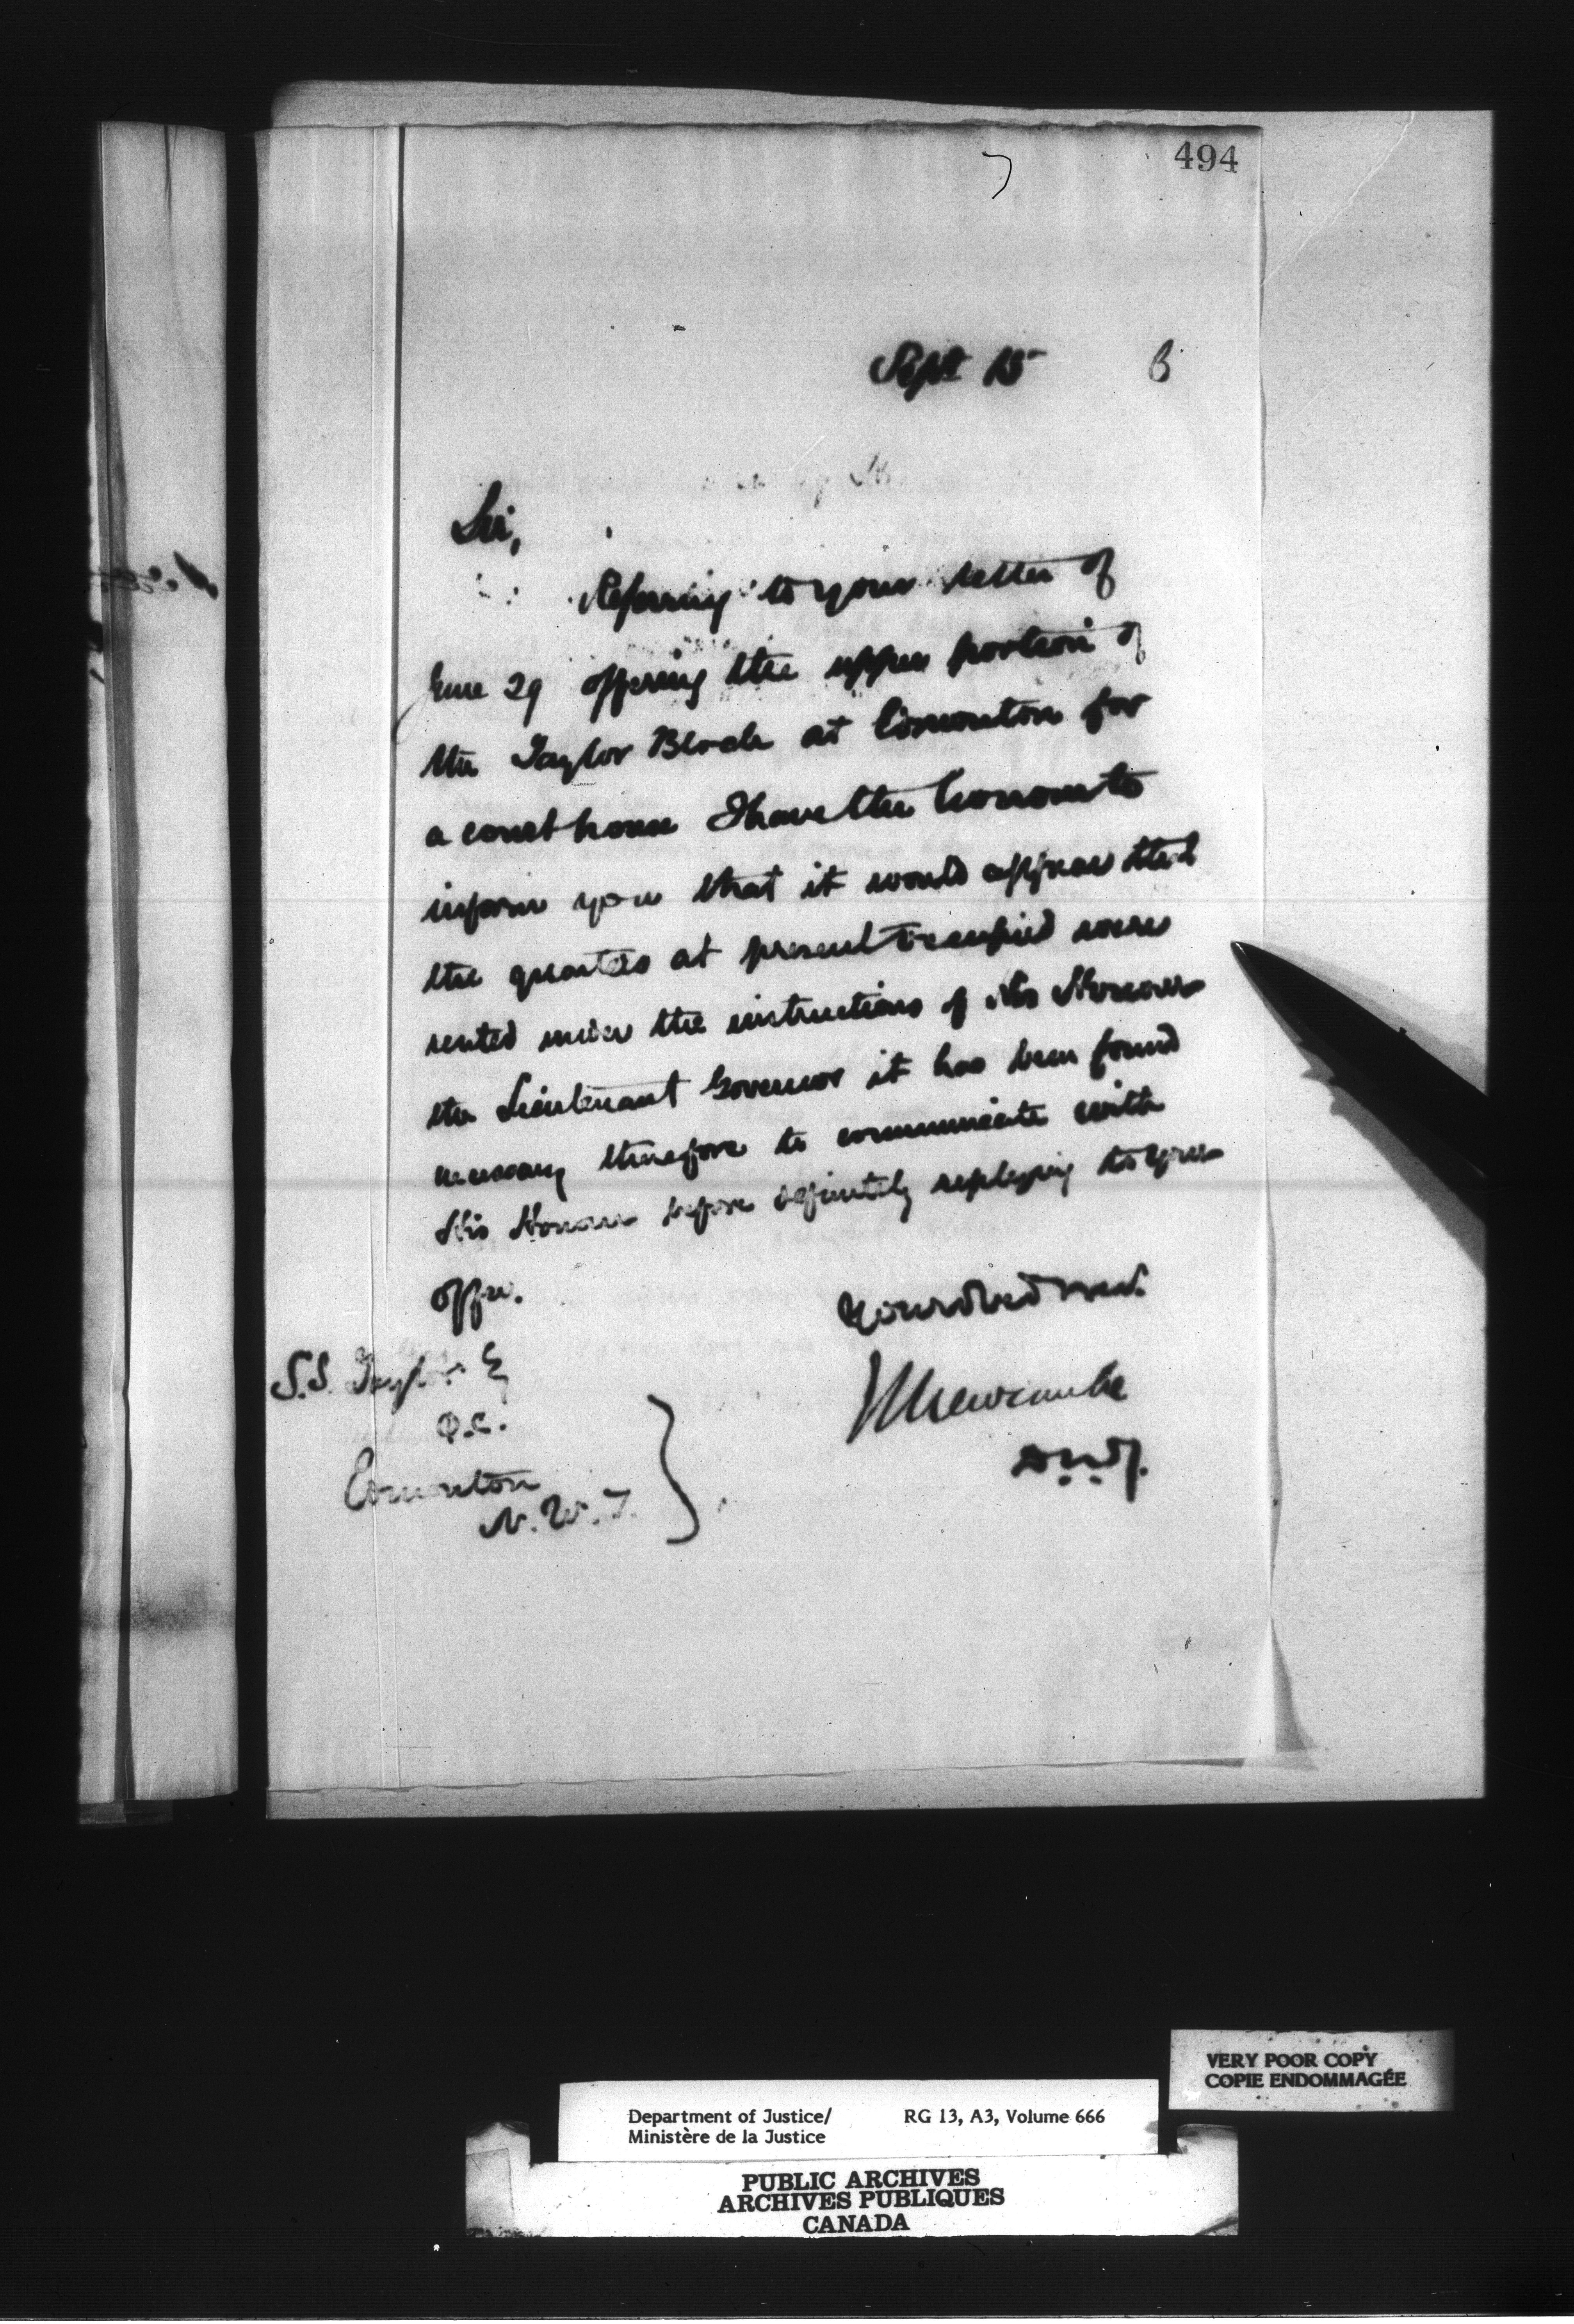 494
Sept 15 3
Sir,
Referring to your letter of
June 29 offering the upper portion of
the Taylor Block at Edmonton for
a court house I have the honour to
inform you that it would appear that
the quarters at present occupied were
rented under the instructions of His Honour
the Lieutenant Governor it has been found
necessary therefore to communicate with
His Honour before definitely replying to your
offer.
Your obed servt.
Newcombe
D.M.J.
S.S. Taylor Esq
Q.C.
Edmonton
N.W.T.
VERY POOR COPY
COPIE ENDOMMAGÉE
Department of Justice/ RG 13, A3, Volume 666
Ministère de la Justice
PUBLIC ARCHIVES
ARCHIVES PUBLIQUES
CANADA